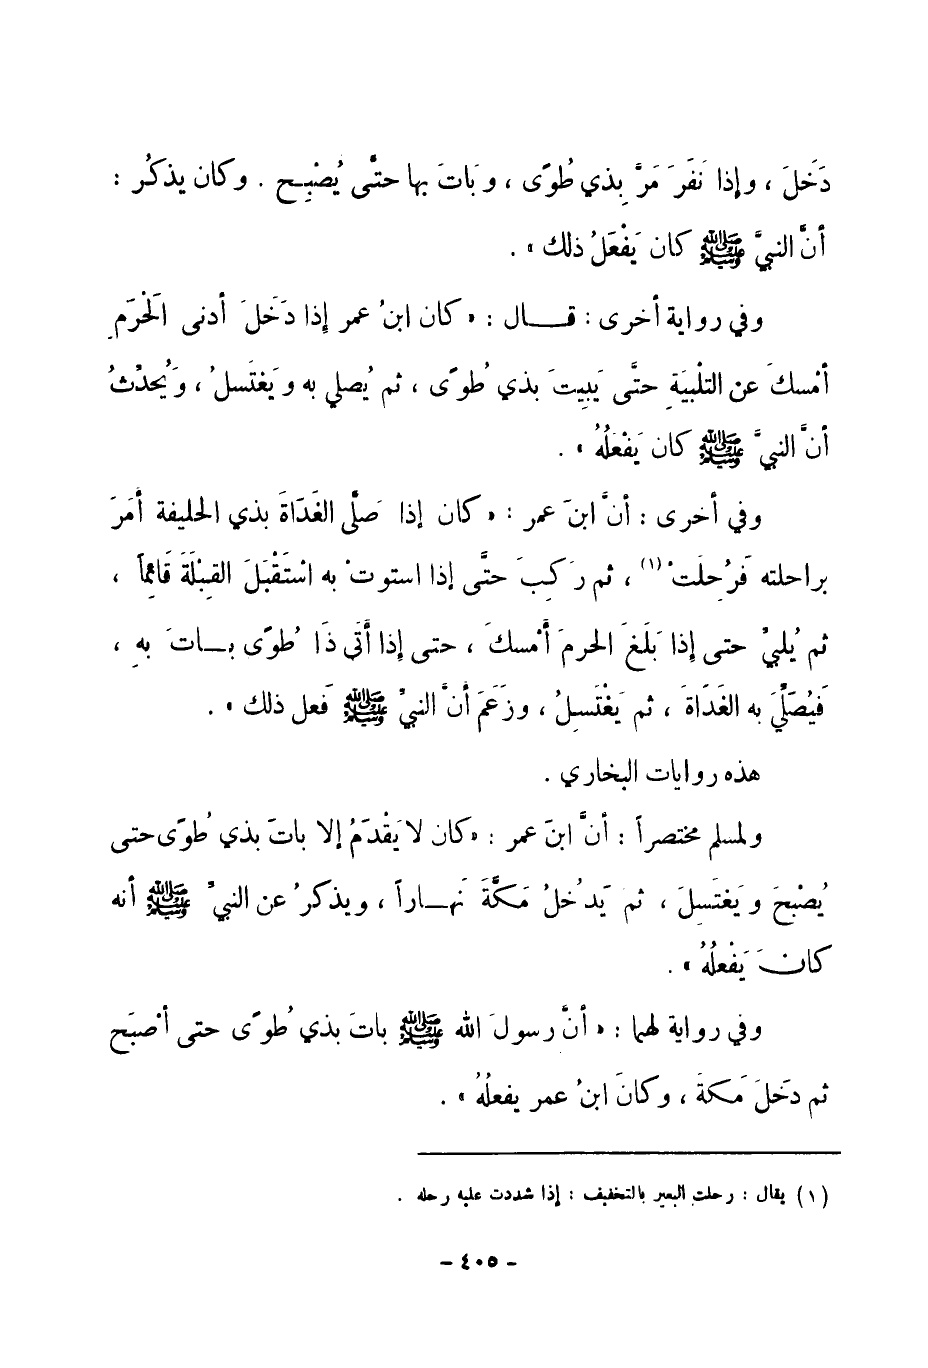 دَخَلَ ، وإذا نَفَرَ مَرَّ بِذي طُوًى ، وبَاتَ بها حتَّى يُصْبِح . وكان يذكُر :
أنَّ النبيَّ ﷺ كان يَفْعَلُ ذلك » .
وفي رواية أخرى : قال : « كان ابنُ عمر إذا دَخَلَ أدنى الحَرَمِ
أمْسكَ عن التلْبيَةِ حتَّى يَبِيتَ بذي طُوًى ، ثم يُصلي به ويَغْتَسلُ ، ويُحَدِّثُ
أنَّ النبيَّ ﷺ كان يَفْعَلُهُ » .
وفي أخرى : أنَّ ابنَ عمر : « كان إذا صَلَّى الغَدَاةَ بذي الحليفة أمَرَ
براحلته فَرُحِلَتْ (١) ، ثم رَكِبَ حتَّى إذا استوتْ به اسْتَقْبَلَ القِبْلَةَ قَائِماً ،
ثم يُلبيِّ حتى إذا بَلَغَ الحرمَ أمْسكَ ، حتى إذا أتَى ذَا طُوًى باتَ بهِ ،
فَيُصَلِّيَ به الغَدَاةَ ، ثم يَغْتَسِلُ ، وزَعَمَ أنَّ النبيَّ ﷺ فَعل ذلك » .
هذه روايات البخاري .
ولمسلم مختصراً : أنَّ ابنَ عمر : «كان لا يَقْدَمُ إلا باتَ بذي طُوًى حتى
يُصْبْحَ ويَغتَسِلَ ، ثم يَدخُلُ مَكَّةَ نهاراً ، ويذكرُ عن النبيِّ ﷺ أنه
كانَ يَفْعلُهُ » .
وفي رواية لهما : « أنَّ رسولَ الله ﷺ باتَ بذي طُوًى حتى أصْبَح
ثم دخَلَ مَكةَ ، وكانَ ابنُ عمر يفعلُهُ » .
(١) يقال : رحلت البعير بالتخفيف : إذا شددت عليه رحله .
- ٤٠٥ -